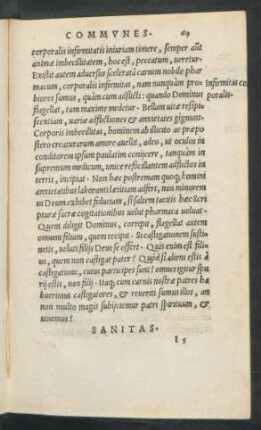 COMMVNES. 69
corporalis infirmitatis iniuriam timere, semper aũt
animæ imbecillitatem, hoc est, peccatum, uretur.
Existit autem aduersus sceleratã carnem nobile phar
macum, corporalis infirmitas, nam nunquàm pro=
Infirmitas co
biores sumus, quàm cum adflicti: quando Dominus
poralis.
flagellat, tum maxime medetur. Bellam uitæ respi
scentiam, uariæ adflictiones & anxietates gignunt.
Corporis imbecillitas, hominem ab illicito ac præpo
stero creaturarum amore auellit, adeo, ut oculos in
conditorem ipsum paulatim conijcere, tanquàm in
supremum medicum, unice reficillantem adflictos in
terris, incipiat. Non hæc postremum quoq; homini
anxietatibus laboranti lætitiam adfert, non minorem
in Deum exhibet fiduciam, si saltem tacitis hæc Scri
pturæ sacræ cogitationibus uelut pharmaca uoluat.
Quem diligit Dominus, corripit, flagellat autem
omnem filium, quem recipit. Si castigationem susti=
netis, uelut filijs Deus se offert. Quis enim est fili=
us, quem non castigat pater? Quòd si alieni estis à
castigatione, cuius participes sunt omnes: igitur spu
rij estis, non filij. Itaq; cum carnis nostræ patres ha
buerimus castigatores, & reueriti sumus illos, an
non multo magis subijciemur patri spirituum, &
uiuemus?
SANITAS.
I 5